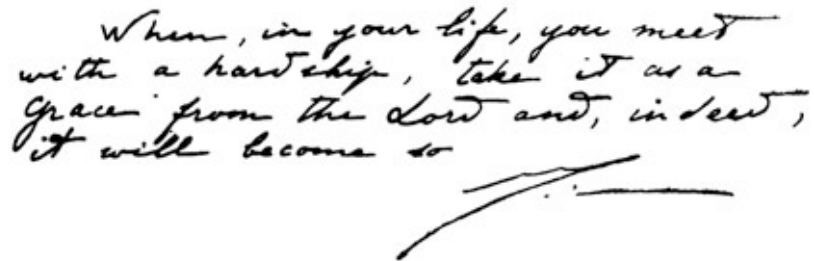 When, in your life, you meet
with a hardship, take it as a
Grace from the Lord and, indeed,
it will become so